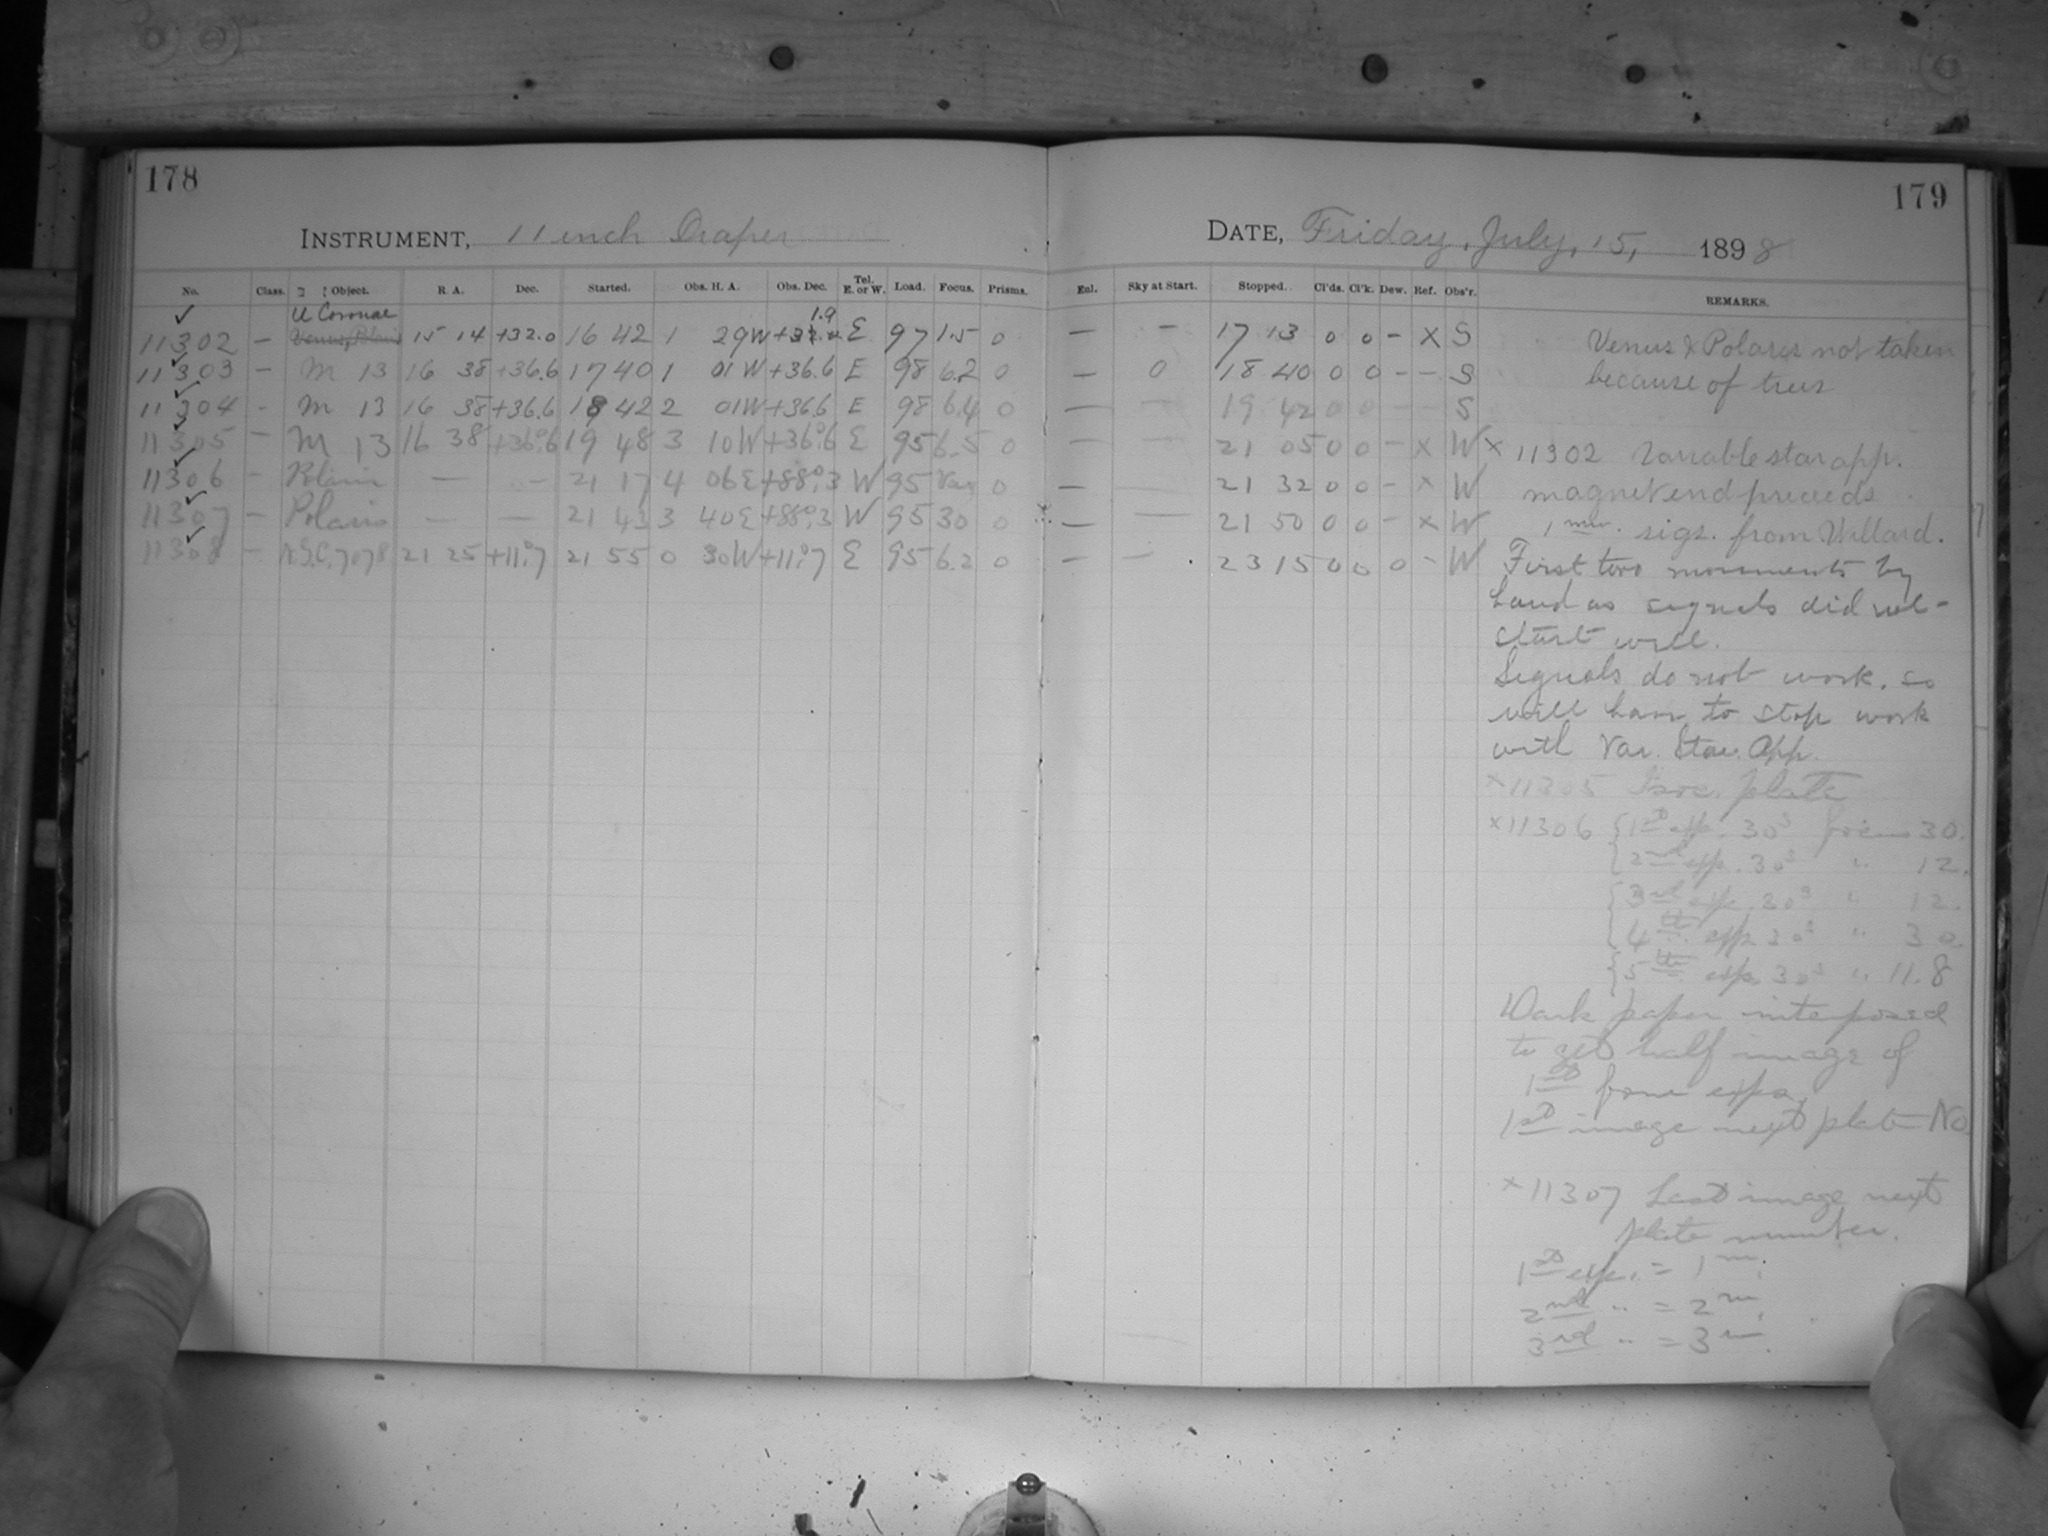 178
179
INSTRUMENT, 11 inch Draper
DATE, Friday, July, 15, 1898
No. Class. Object. R. A. Dec. Started. Obs. H. A. Obs. Dec. Tel. E. or W. Load. Focus. Prisms. Enl. Sky at Start. Stopped. Cl'ds. Cl'k. Dew. Ref. Obs'r. REMARKS.
U Coronae 1.9
11302 – Venus, Polaris 15 14 +32.0 16 42 1 29W +32.0 E 97 1.5 0 – – 17 13 0 0 – X S Venus & Polaris not taken
11303 – M 13 16 38 +36.6 17 40 1 01W +36.6 E 98 6.2 0 – 0 18 40 0 0 – – S because of trees
11304 - M 13 16 38 +36.6 18 42 2 01W +36.6 E 98 6.4 0 – – 19 42 0 0 – – S
11305 – M 13 16 38 +36°.6 19 48 3 10W +36°.6 E 95 6.5 0 – – 21 05 0 0 – x W x 11302 Variable star app.
11306 – Polaris – – 21 17 4 06E +88°.3 W 95 Var 0 – – 21 32 0 0 – x W magnet end preceeds
11307 – Polaris – – 21 43 3 40E +88°.3 W 95 30 0 – – 21 50 0 0 – x W 1 min. sigs. from Willard.
11308 – N.G.C. 7078 21 25 +11°.7 21 55 0 30W +11°.7 E 95 6.2 0 – – 23 15 0 0 0 - W First two movements by
hand as signals did not
start well.
Signals do not work, so
will have to stop work
with Var. Star. App.
x 11305 Isoc. plate
x 11306 { 1st exp. 30s focus 30.
{ 2nd exp. 30s " 12.
{ 3rd exp. 30s " 12.
{ 4th exp. 30s " 30
{ 5th exp. 30s " 11.8
Dark paper interposed
to get half image of
1st four exps.
1st image next plate No.
x 11307 Last image next
plate number.
1st exp. = 1m.
2nd " = 2m.
3rd " = 3m.